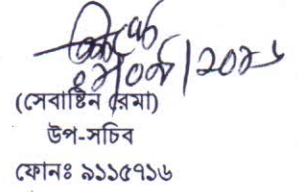 (সেবাষ্টিন রেমা)
উপ-সচিব
ফোনঃ ৯১১৫৭১৬